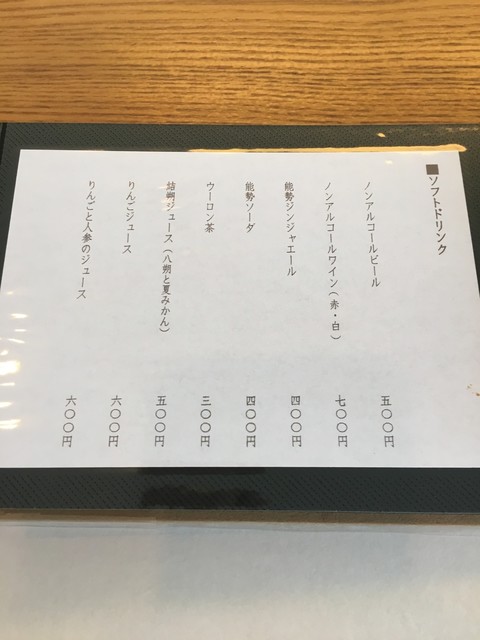 ■ソフトドリンク
ノンアルコールビール 五〇〇円
ノンアルコールワイン(赤・白) 七〇〇円
能勢ジンジャエール 四〇〇円
能勢ソーダ 四〇〇円
ウーロン茶 三〇〇円
ジュース(八朔と夏みかん) 五〇〇円
りんごジュース 六〇〇円
りんごと人参のジュース 六〇〇円